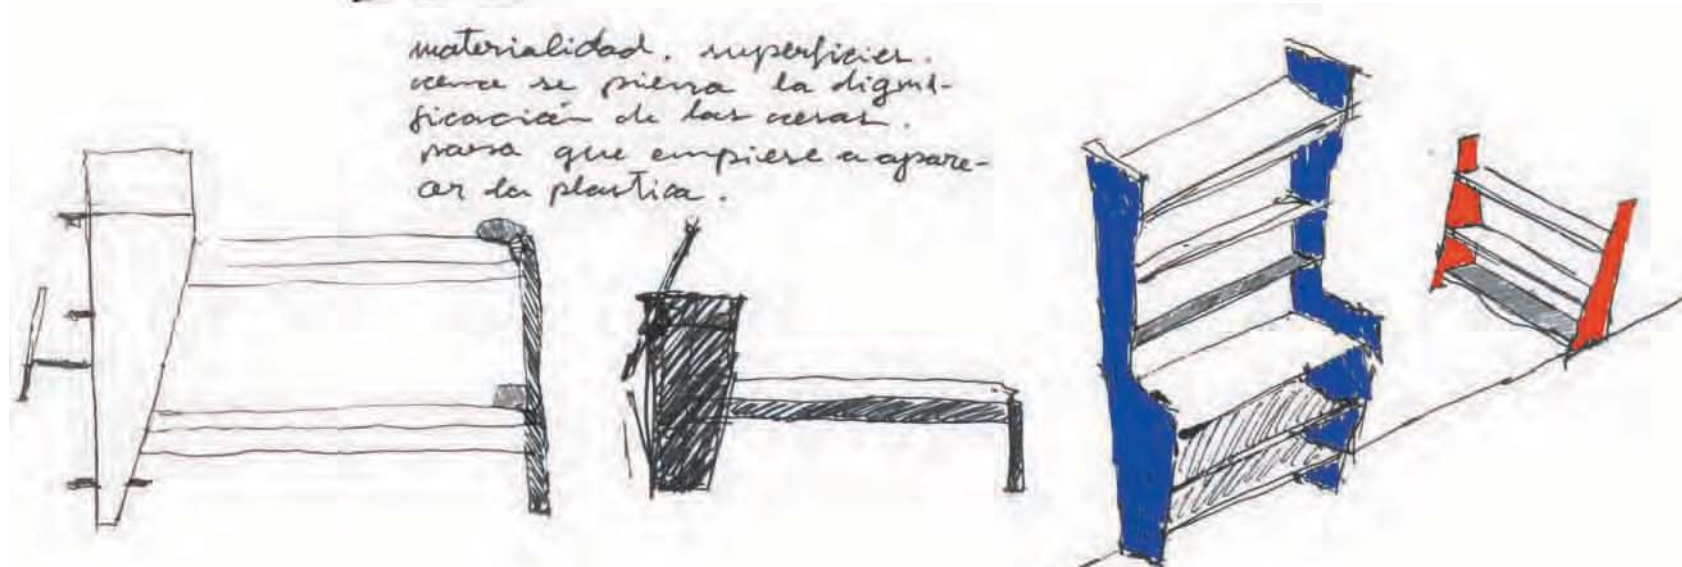 materialidad. superficies.
como se piensa la digni-
ficación de las cosas.
para que empiese a apare-
cer la plastica.